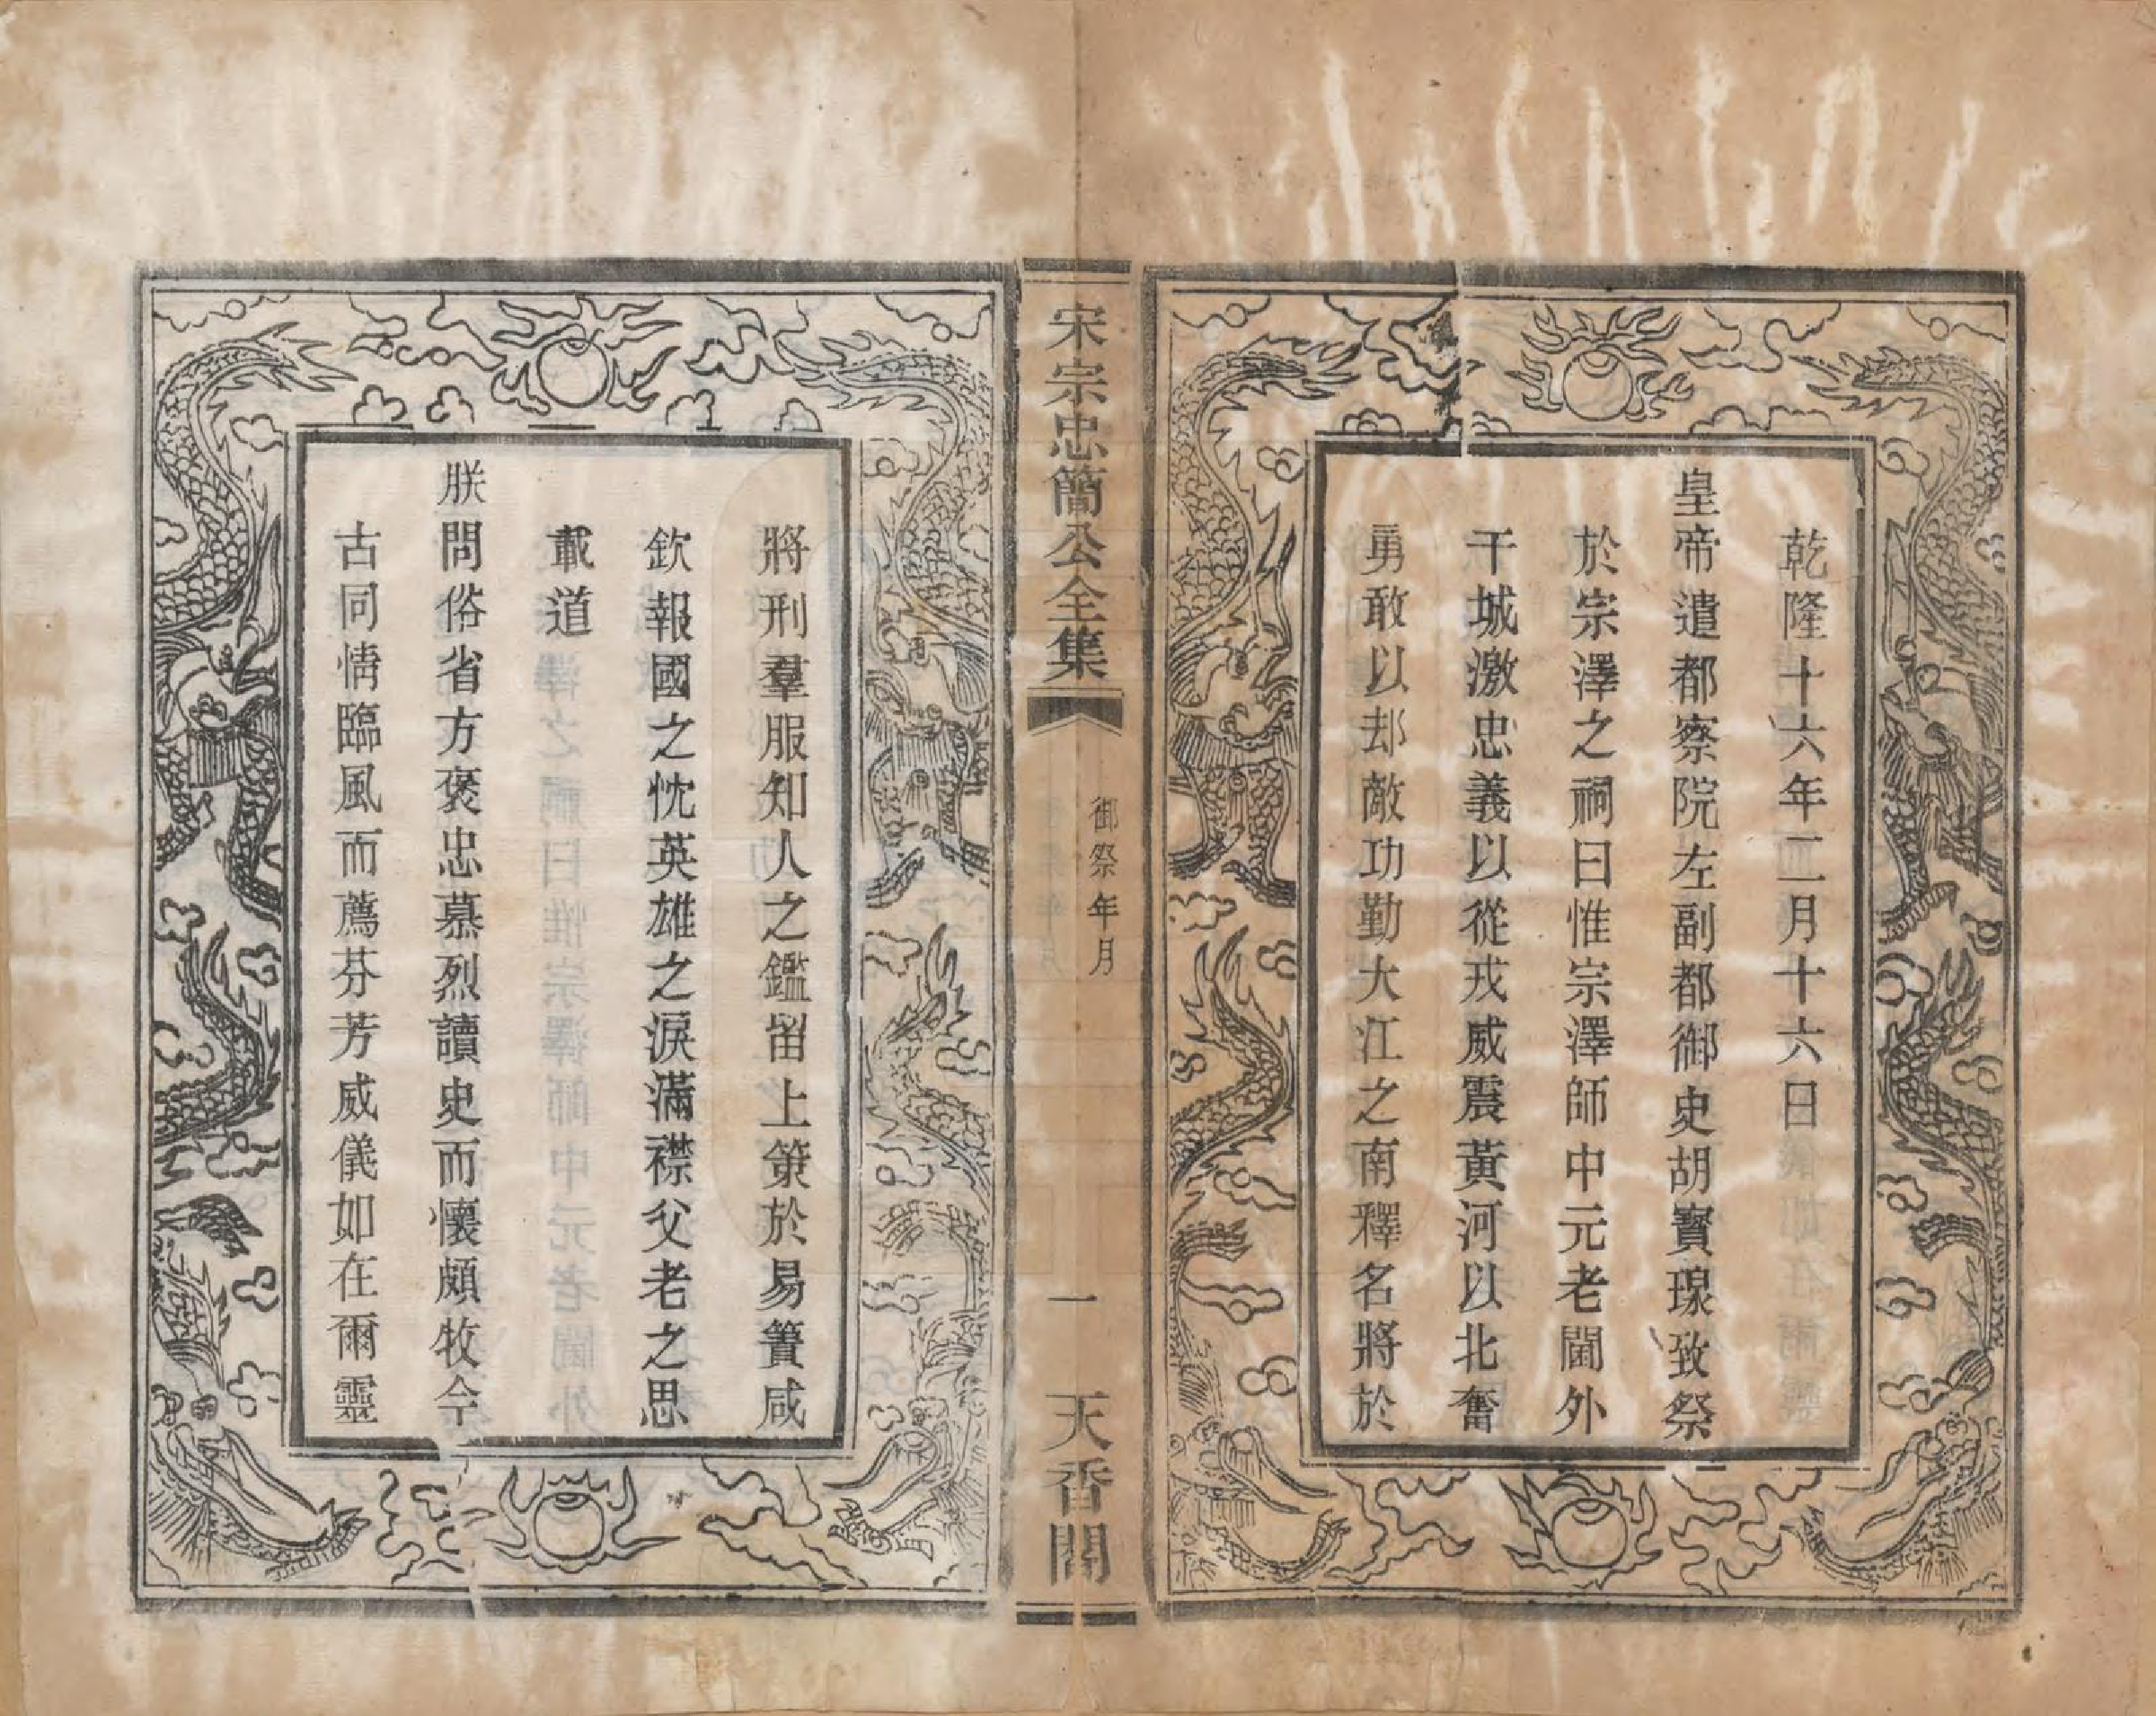 乾隆十六年二月十六日
皇帝遣都察院左副都御史胡寶瑔致祭
於宗澤之祠曰惟宗澤師中元老閫外
干城激忠義以從戎威震黃河以北奮
勇敢以却敵功勤大江之南釋名將於
宋宗忠簡公全集
御祭年月
一
天香閣
將刑羣服知人之鑑留上策於易簀咸
欽報國之忱英雄之淚滿襟父老之思
載道
朕問俗省方褒忠慕烈讀史而懷頗牧今
古同情臨風而薦芬芳威儀如在爾靈